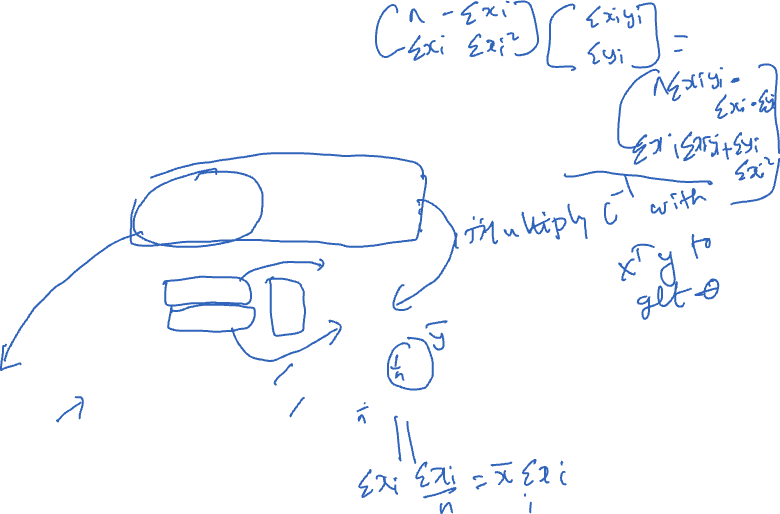 (n - Σxi) [Σxiyi] =
(-Σxi Σxi²) [Σyi]
[nΣxiyi -
Σxi·Σyi
Σxi Σxiyi + Σyi
Σxi²]
multiply C⁻¹ with
xᵀy to
get θ
ȳ
1/n
Σxi Σxi/n = x̄ Σxi
i